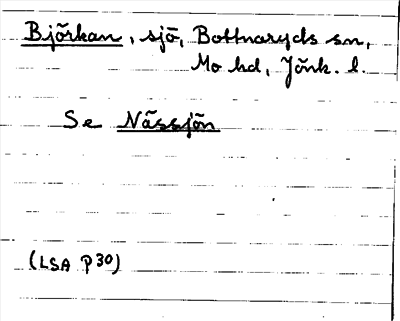 Björkan, sjö, Bottnaryds sn,
Mo hd, Jönk. l.
Se Nässjön
(LSA P30)